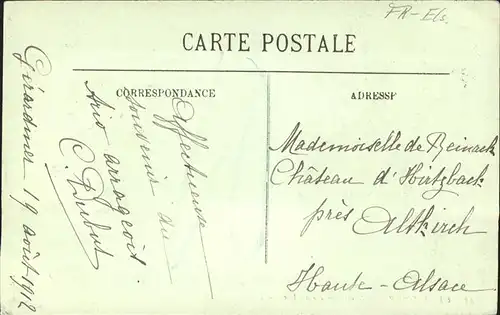 FR-Els.
CARTE POSTALE
CORRESPONDANCE
ADRESSE
Gérardmer 19 août 1912
Affectueux
souvenir du
Trio arrageois
C. Dubut
Mademoiselle de Reinach
Château d'Hirtzbach
près Altkirch
Haute-Alsace